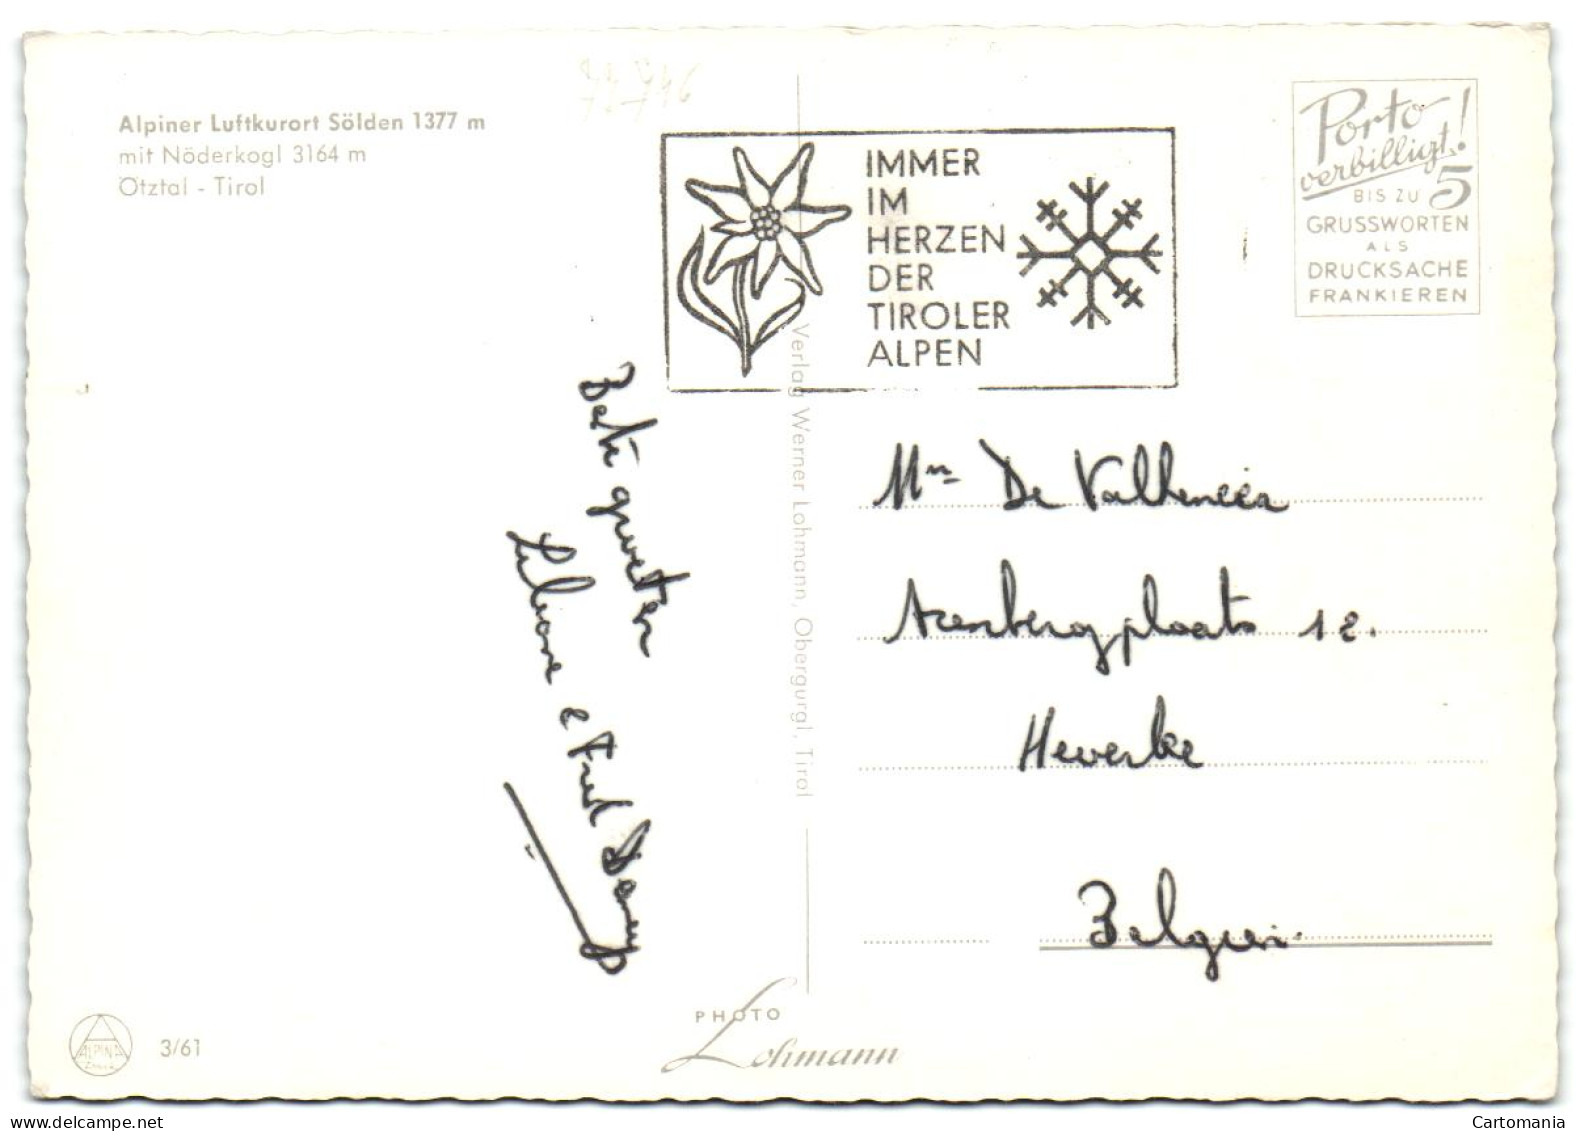 Alpiner Luftkurort Sölden 1377 m
mit Nöderkogl 3164 m
Ötztal - Tirol
IMMER
IM
HERZEN
DER
TIROLER
ALPEN
Porto
verbilligt!
BIS ZU 5
GRUSSWORTEN
ALS
DRUCKSACHE
FRANKIEREN
Verlag Werner Lohmann, Obergurgl, Tirol
Beste groeten
Liliane e Fred
Mr De
Arenbergplaats 12.
Heverke
Belgien
PHOTO
Lohmann
ALPINA
3/61
Cartomania